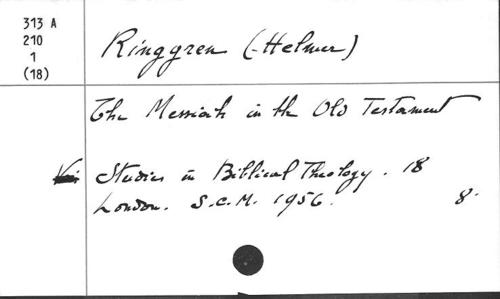 313 A
210
1
(18)
Ringgren (Helmer)
The Messiah in the Old Testament
Studies in Biblical Theology. 18
London. S.C.M. 1956.
8.